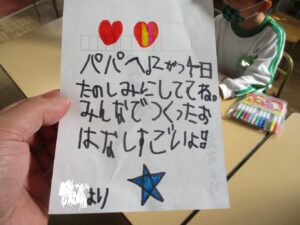 パパへ12がつ4日
たのしみにしててね。
みんなでつくったお
はなしすごいよ!!
より